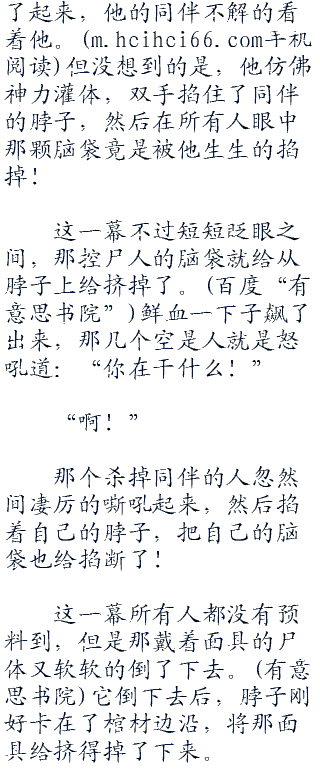 了起来，他的同伴不解的看
着他。(m.hcihci66.com手机
阅读)但没想到的是，他仿佛
神力灌体，双手掐住了同伴
的脖子，然后在所有人眼中
那颗脑袋竟是被他生生的掐
掉！
这一幕不过短短眨眼之
间，那控尸人的脑袋就给从
脖子上给挤掉了。(百度“有
意思书院”)鲜血一下子飙了
出来，那几个空是人就是怒
吼道：“你在干什么！”
“啊！”
那个杀掉同伴的人忽然
间凄厉的嘶吼起来，然后掐
着自己的脖子，把自己的脑
袋也给掐断了！
这一幕所有人都没有预
料到，但是那戴着面具的尸
体又软软的倒了下去。(有意
思书院)它倒下去后，脖子刚
好卡在了棺材边沿，将那面
具给挤得掉了下来。